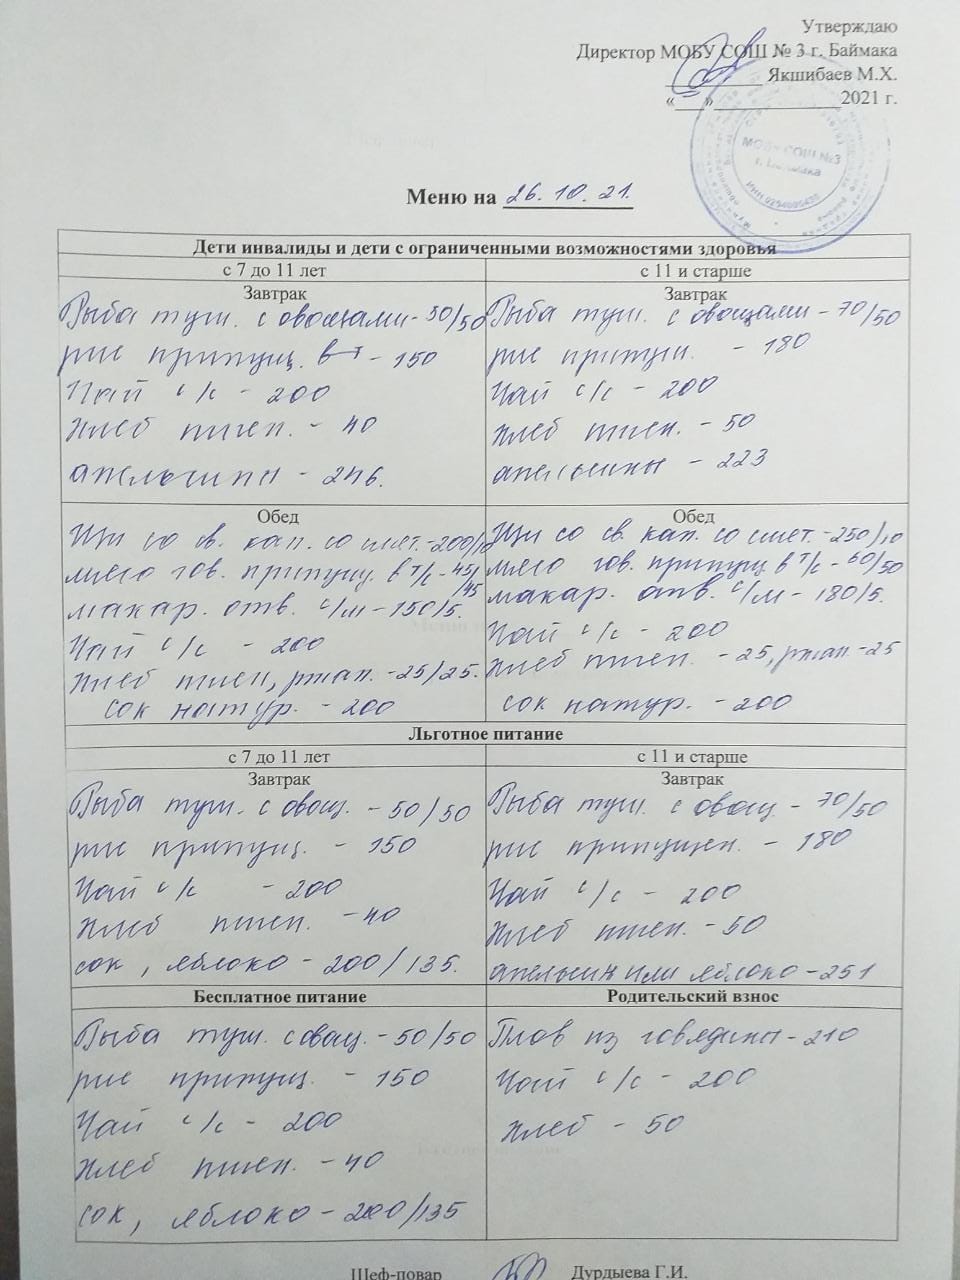 Утверждаю
Директор МОБУ СОШ № 3 г. Баймака
Якшибаев М.Х.
«___»_____________2021 г.
МОБУ СОШ №3
г. Баймака
Меню на 26. 10. 21.
Дети инвалиды и дети с ограниченными возможностями здоровья
с 7 до 11 лет
Завтрак
Рыба туш. с овощами - 50/50
рис припущ. в т - 150
Чай с/с - 200
Хлеб пшен. - 40
апельсины - 246.
с 11 и старше
Завтрак
Рыба туш. с овощами - 70/50
рис припущ. - 180
Чай с/с - 200
Хлеб пшен. - 50
апельсины - 223
Обед
Щи со св. кап. со смет. - 200/10
мясо гов. припущ. в т/с - 45/45
макар. отв. с/м - 150/5.
Чай с/с - 200
Хлеб пшен, ржан. - 25/25.
сок натур. - 200
Обед
Щи со св. кап. со смет. - 250/10
мясо гов. припущ в т/с - 60/50
макар. отв. с/м - 180/5.
Чай с/с - 200
Хлеб пшен. - 25, ржан. - 25
сок натур. - 200
Льготное питание
с 7 до 11 лет
Завтрак
Рыба туш. с овощ. - 50/50
рис припущ. - 150
Чай с/с - 200
Хлеб пшен. - 40
сок, яблоко - 200/135.
с 11 и старше
Завтрак
Рыба туш. с овощ - 70/50
рис припущен. - 180
Чай с/с - 200
Хлеб пшен. - 50
апельсин или яблоко - 251
Бесплатное питание
Рыба туш. с овощ. - 50/50
рис припущ. - 150
Чай с/с - 200
Хлеб пшен. - 40
сок, яблоко - 200/135
Родительский взнос
Плов из говядины - 210
Чай с/с - 200
Хлеб - 50
Шеф-повар Дурдыева Г.И.